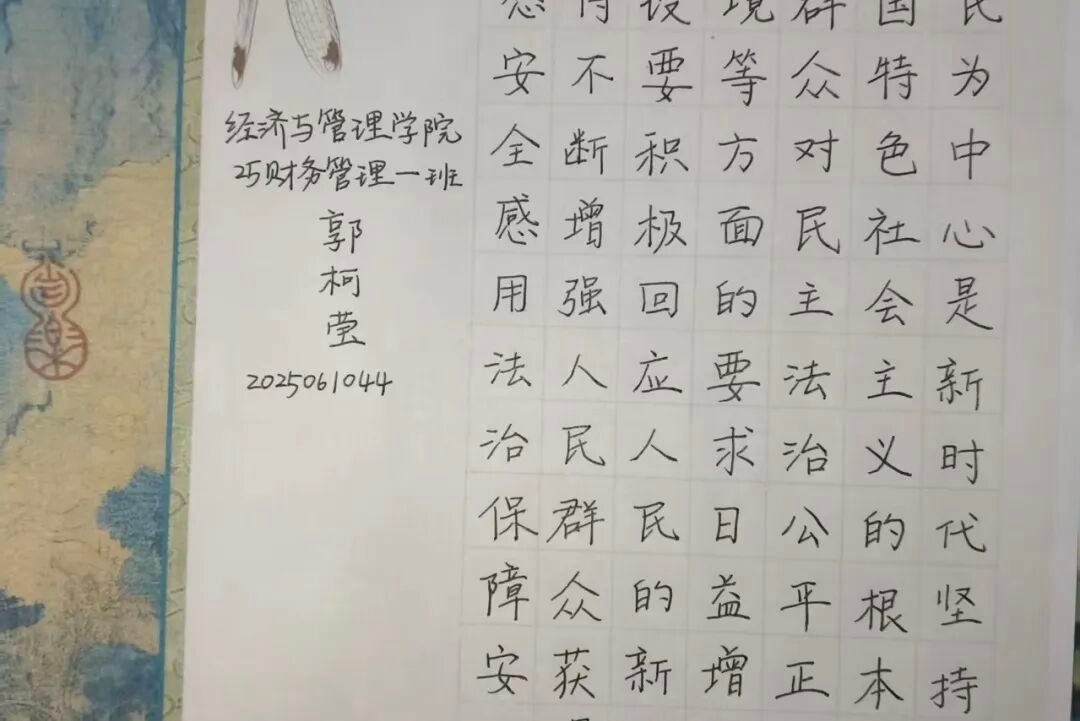 民为中心是新时代坚持
国特色社会主义的根本
群众对民主法治公平正
境等方面的要求日益增
设要积极回应人民的新
不断增强人民群众获
安全感用法治保障安
经济与管理学院
25财务管理一班
郭柯莹
2025061044